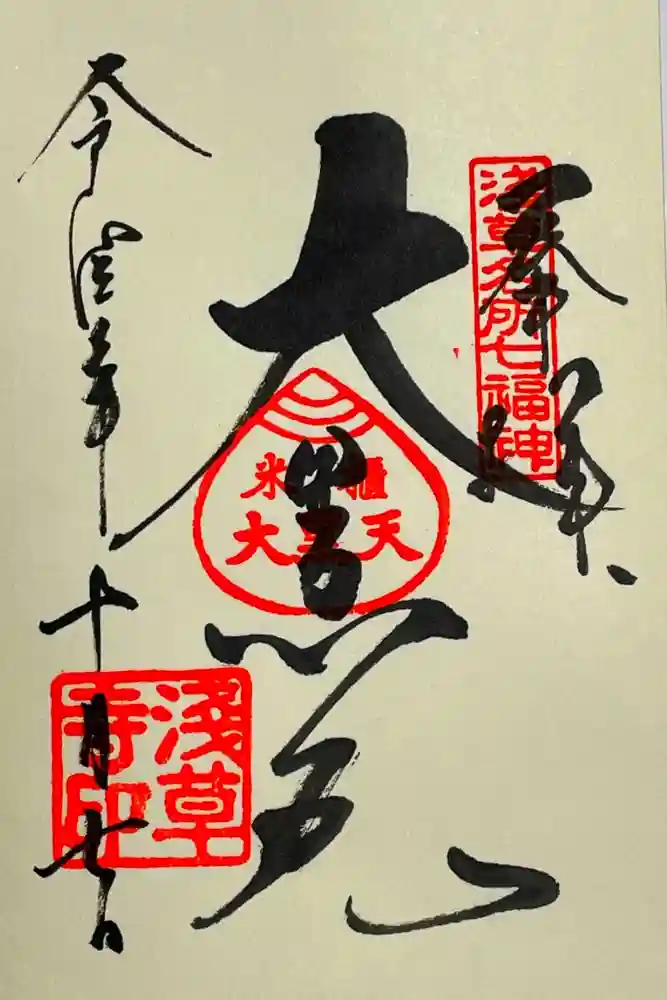 奉拝
浅草名所七福神
大黒天
米櫃
大黒天
令和
年十月七日
淺草
寺印